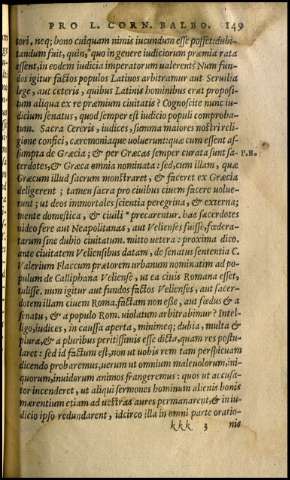 PRO L. CORN. BALBO. 149
tori, neq; bono cuiquam nimis iucundum esse posset: dubi-
tandum fuit, quin, quo in genere iudiciorum præmia rata
essent, in eodem iudicia imperatorum ualerent? Num fun-
dos igitur factos populos Latinos arbitramur aut Seruilia
lege, aut ceteris, quibus Latinis hominibus erat proposi-
tum aliqua ex re præmium ciuitatis? Cognoscite nunc iu-
dicium senatus, quod semper est iudicio populi comproba-
tum. Sacra Cereris, iudices, summa maiores nostri reli-
gione confici, cæremoniaque uoluerunt: quæ cum essent as-
sumpta de Græcia; & per Græcas semper curata sunt sa- P.R.
cerdotes, & Græca omnia nominata: sed, cum illam, quæ
Græcum illud sacrum monstraret, & faceret ex Græcia
deligerent; tamen sacra pro ciuibus ciuem facere uolue-
runt; ut deos immortales scientia peregrina, & externa;
mente domestica, & ciuili precarentur. has sacerdotes
uideo fere aut Neapolitanas, aut Velienses fuisse, fœdera-
tarum sine dubio ciuitatum. mitto uetera: proxima dico.
ante ciuitatem Veliensibus datam, de senatus sententia C.
Valerium Flaccum prætorem urbanum nominatim ad po-
pulum de Calliphana Veliense, ut ea ciuis Romana esset,
tulisse. num igitur aut fundos factos Velienses, aut sacer-
dotem illam ciuem Roma. factam non esse, aut fœdus & a
senatu, & a populo Rom. uiolatum arbitrabimur? Intel-
ligo, iudices, in caussa aperta, minimeq; dubia, multa &
plura, & a pluribus peritissimis esse dicta, quam res postu-
laret: sed id factum est, non ut uobis rem tam perspicuam
dicendo probaremus, uerum ut omnium maleuolorum, ini-
quorum, inuidorum animos frangeremus: quos ut accusa-
tor incenderet, ut aliqui sermones hominum alienis bonis
mærentium etiam ad uestras aures permanarent, & in iu-
dicio ipso redundarent, idcirco illa in omni parte oratio-
kkk 3 nis